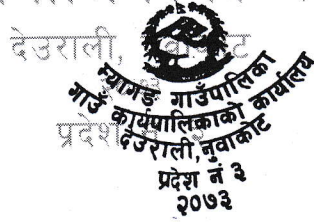 देउराली, नुवाकोट
म्यागङ गाउँपालिका
गाउँ कार्यपालिकाको कार्यालय
देउराली, नुवाकोट
प्रदेश
प्रदेश नं ३
२०७३